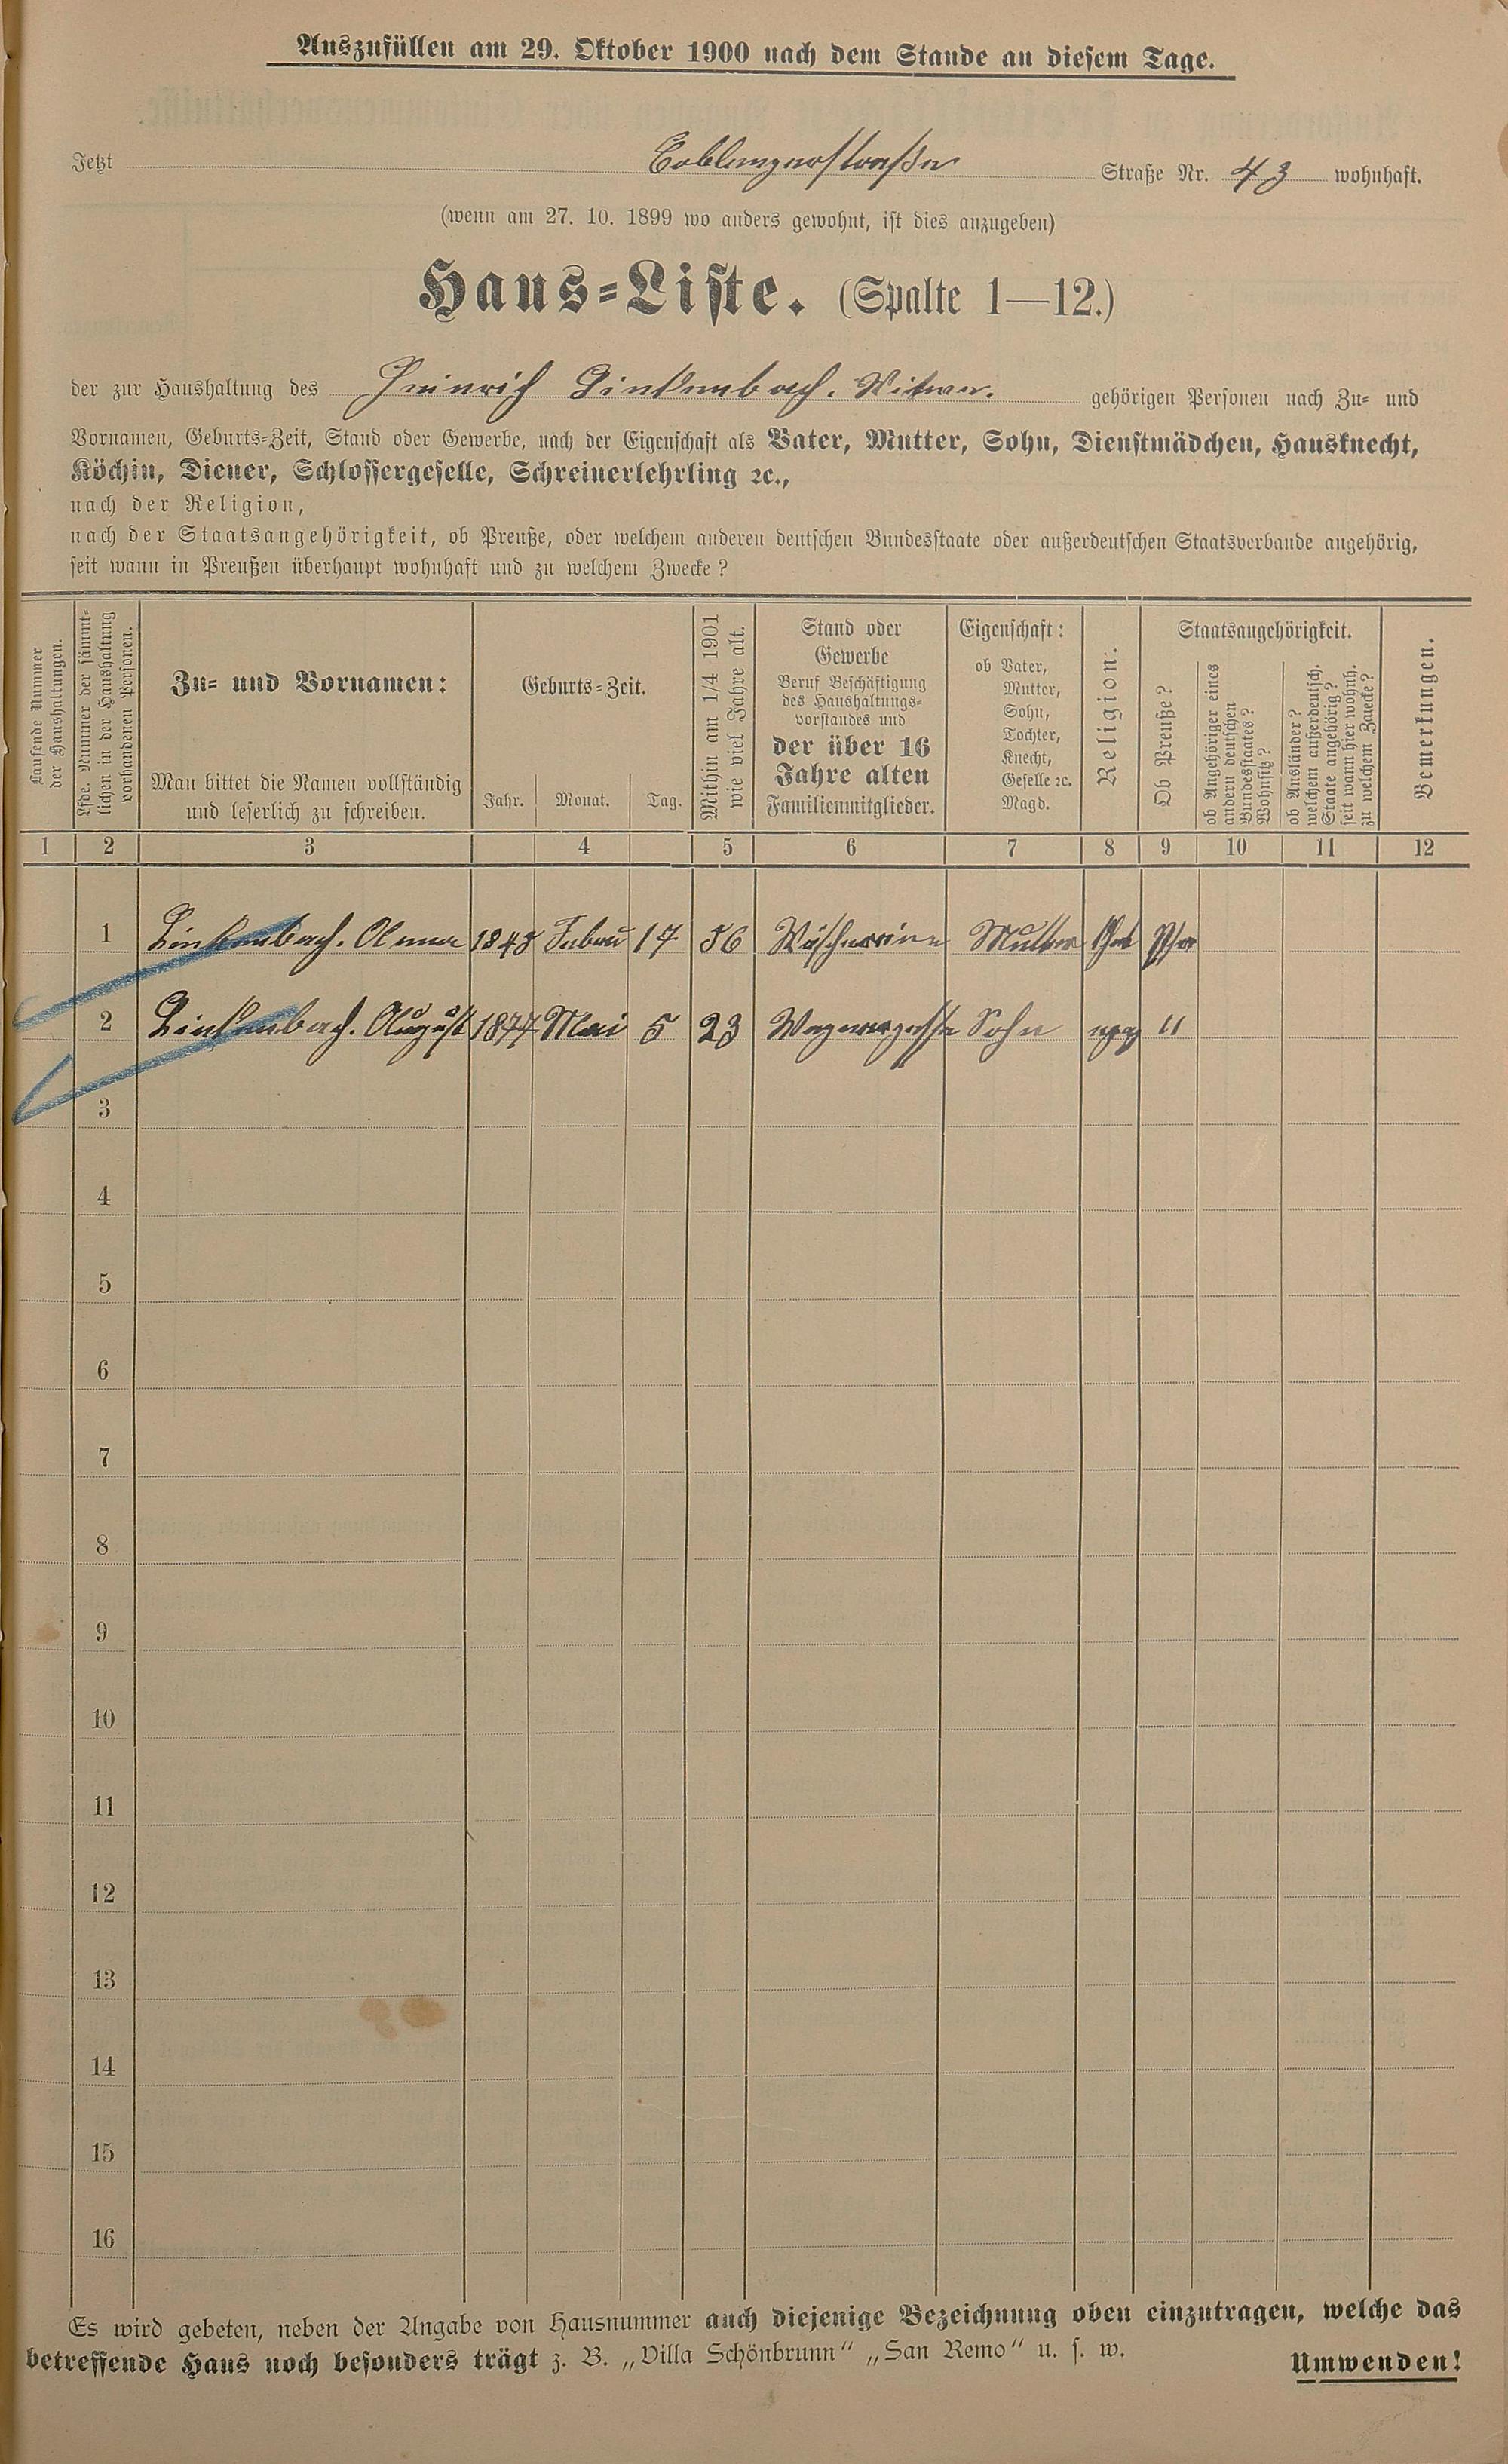 Auszufüllen am 29. Oktober 1900 nach dem Stande an diesem Tage.
Jetzt Coblenzerstraße Straße Nr. 43 wohnhaft.
(wenn am 27. 10. 1899 wo anders gewohnt, ist dies anzugeben)
Haus-Liste. (Spalte 1—12.)
der zur Haushaltung des Heinrich Linkenbach. Witwe. gehörigen Personen nach Zu- und
Vornamen, Geburts-Zeit, Stand oder Gewerbe, nach der Eigenschaft als Vater, Mutter, Sohn, Dienstmädchen, Hausknecht,
Köchin, Diener, Schlossergeselle, Schreinerlehrling ꝛc.,
nach der Religion,
nach der Staatsangehörigkeit, ob Preuße, oder welchem anderen deutschen Bundesstaate oder außerdeutschen Staatsverbande angehörig,
seit wann in Preußen überhaupt wohnhaft und zu welchem Zwecke?
Laufende Nummer
der Haushaltungen.
Lfde. Nummer der sämmt-
lichen in der Haushaltung
vorhandenen Personen.
Zu- und Vornamen:
Man bittet die Namen vollständig
und leserlich zu schreiben.
Geburts-Zeit.
Jahr. Monat. Tag.
Mithin am 1/4 1901
wie viel Jahre alt.
Stand oder
Gewerbe
Beruf Beschäftigung
des Haushaltungs-
vorstandes und
der über 16
Jahre alten
Familienmitglieder.
Eigenschaft:
ob Vater,
Mutter,
Sohn,
Tochter,
Knecht,
Geselle ꝛc.
Magd.
Religion.
Staatsangehörigkeit.
Ob Preuße?
ob Angehöriger eines
andern deutschen
Bundesstaates?
Wohnsitz?
ob Ausländer?
welchem außerdeutsch.
Staate angehörig?
seit wann hier wohnh.
zu welchem Zwecke?
Bemerkungen.
1 2 3 4 5 6 7 8 9 10 11 12
1 Linkenbach. Anna 17 56 Wäscherinn Mutter
2 Linkenbach. August 1877 Mai 5 23 Sohn "
3
4
5
6
7
8
9
10
11
12
13
14
15
16
Es wird gebeten, neben der Angabe von Hausnummer auch diejenige Bezeichnung oben einzutragen, welche das
betreffende Haus noch besonders trägt z. B. „Villa Schönbrunn“ „San Remo“ u. s. w.
Umwenden!